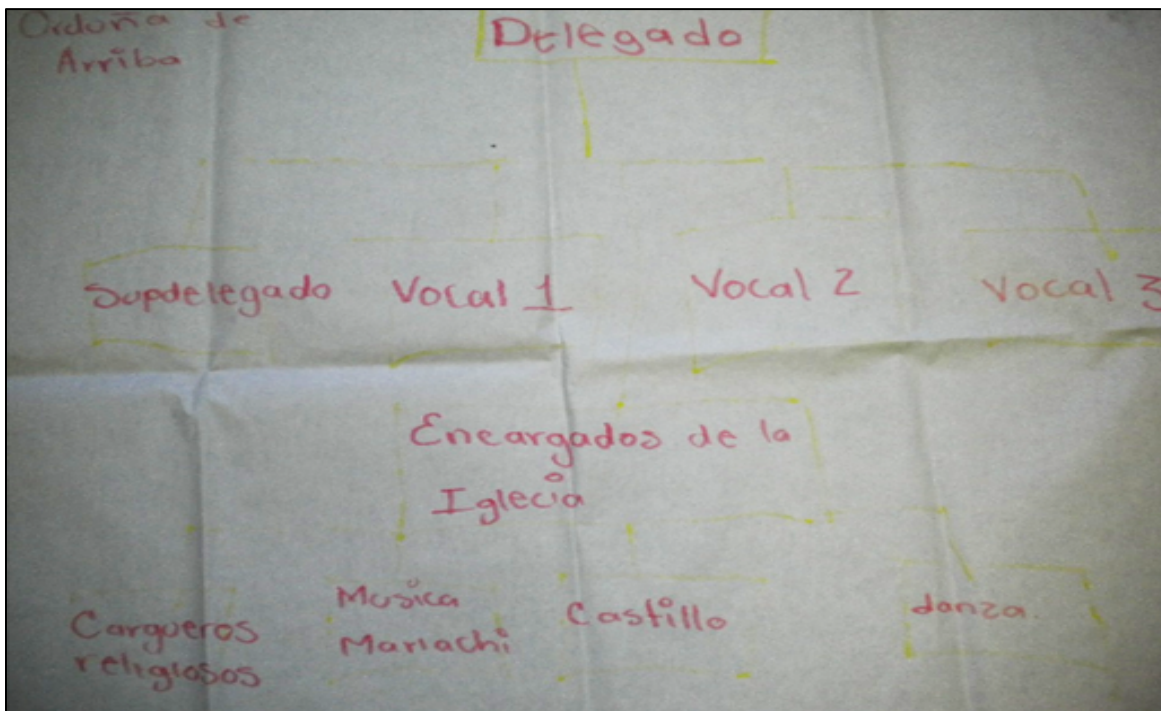 Orduña de
Arriba
Delegado
Supdelegado
Vocal 1
Vocal 2
Vocal 3
Encargados de la
Iglecia
Cargueros
religiosos
Musica
Mariachi
Castillo
danza.